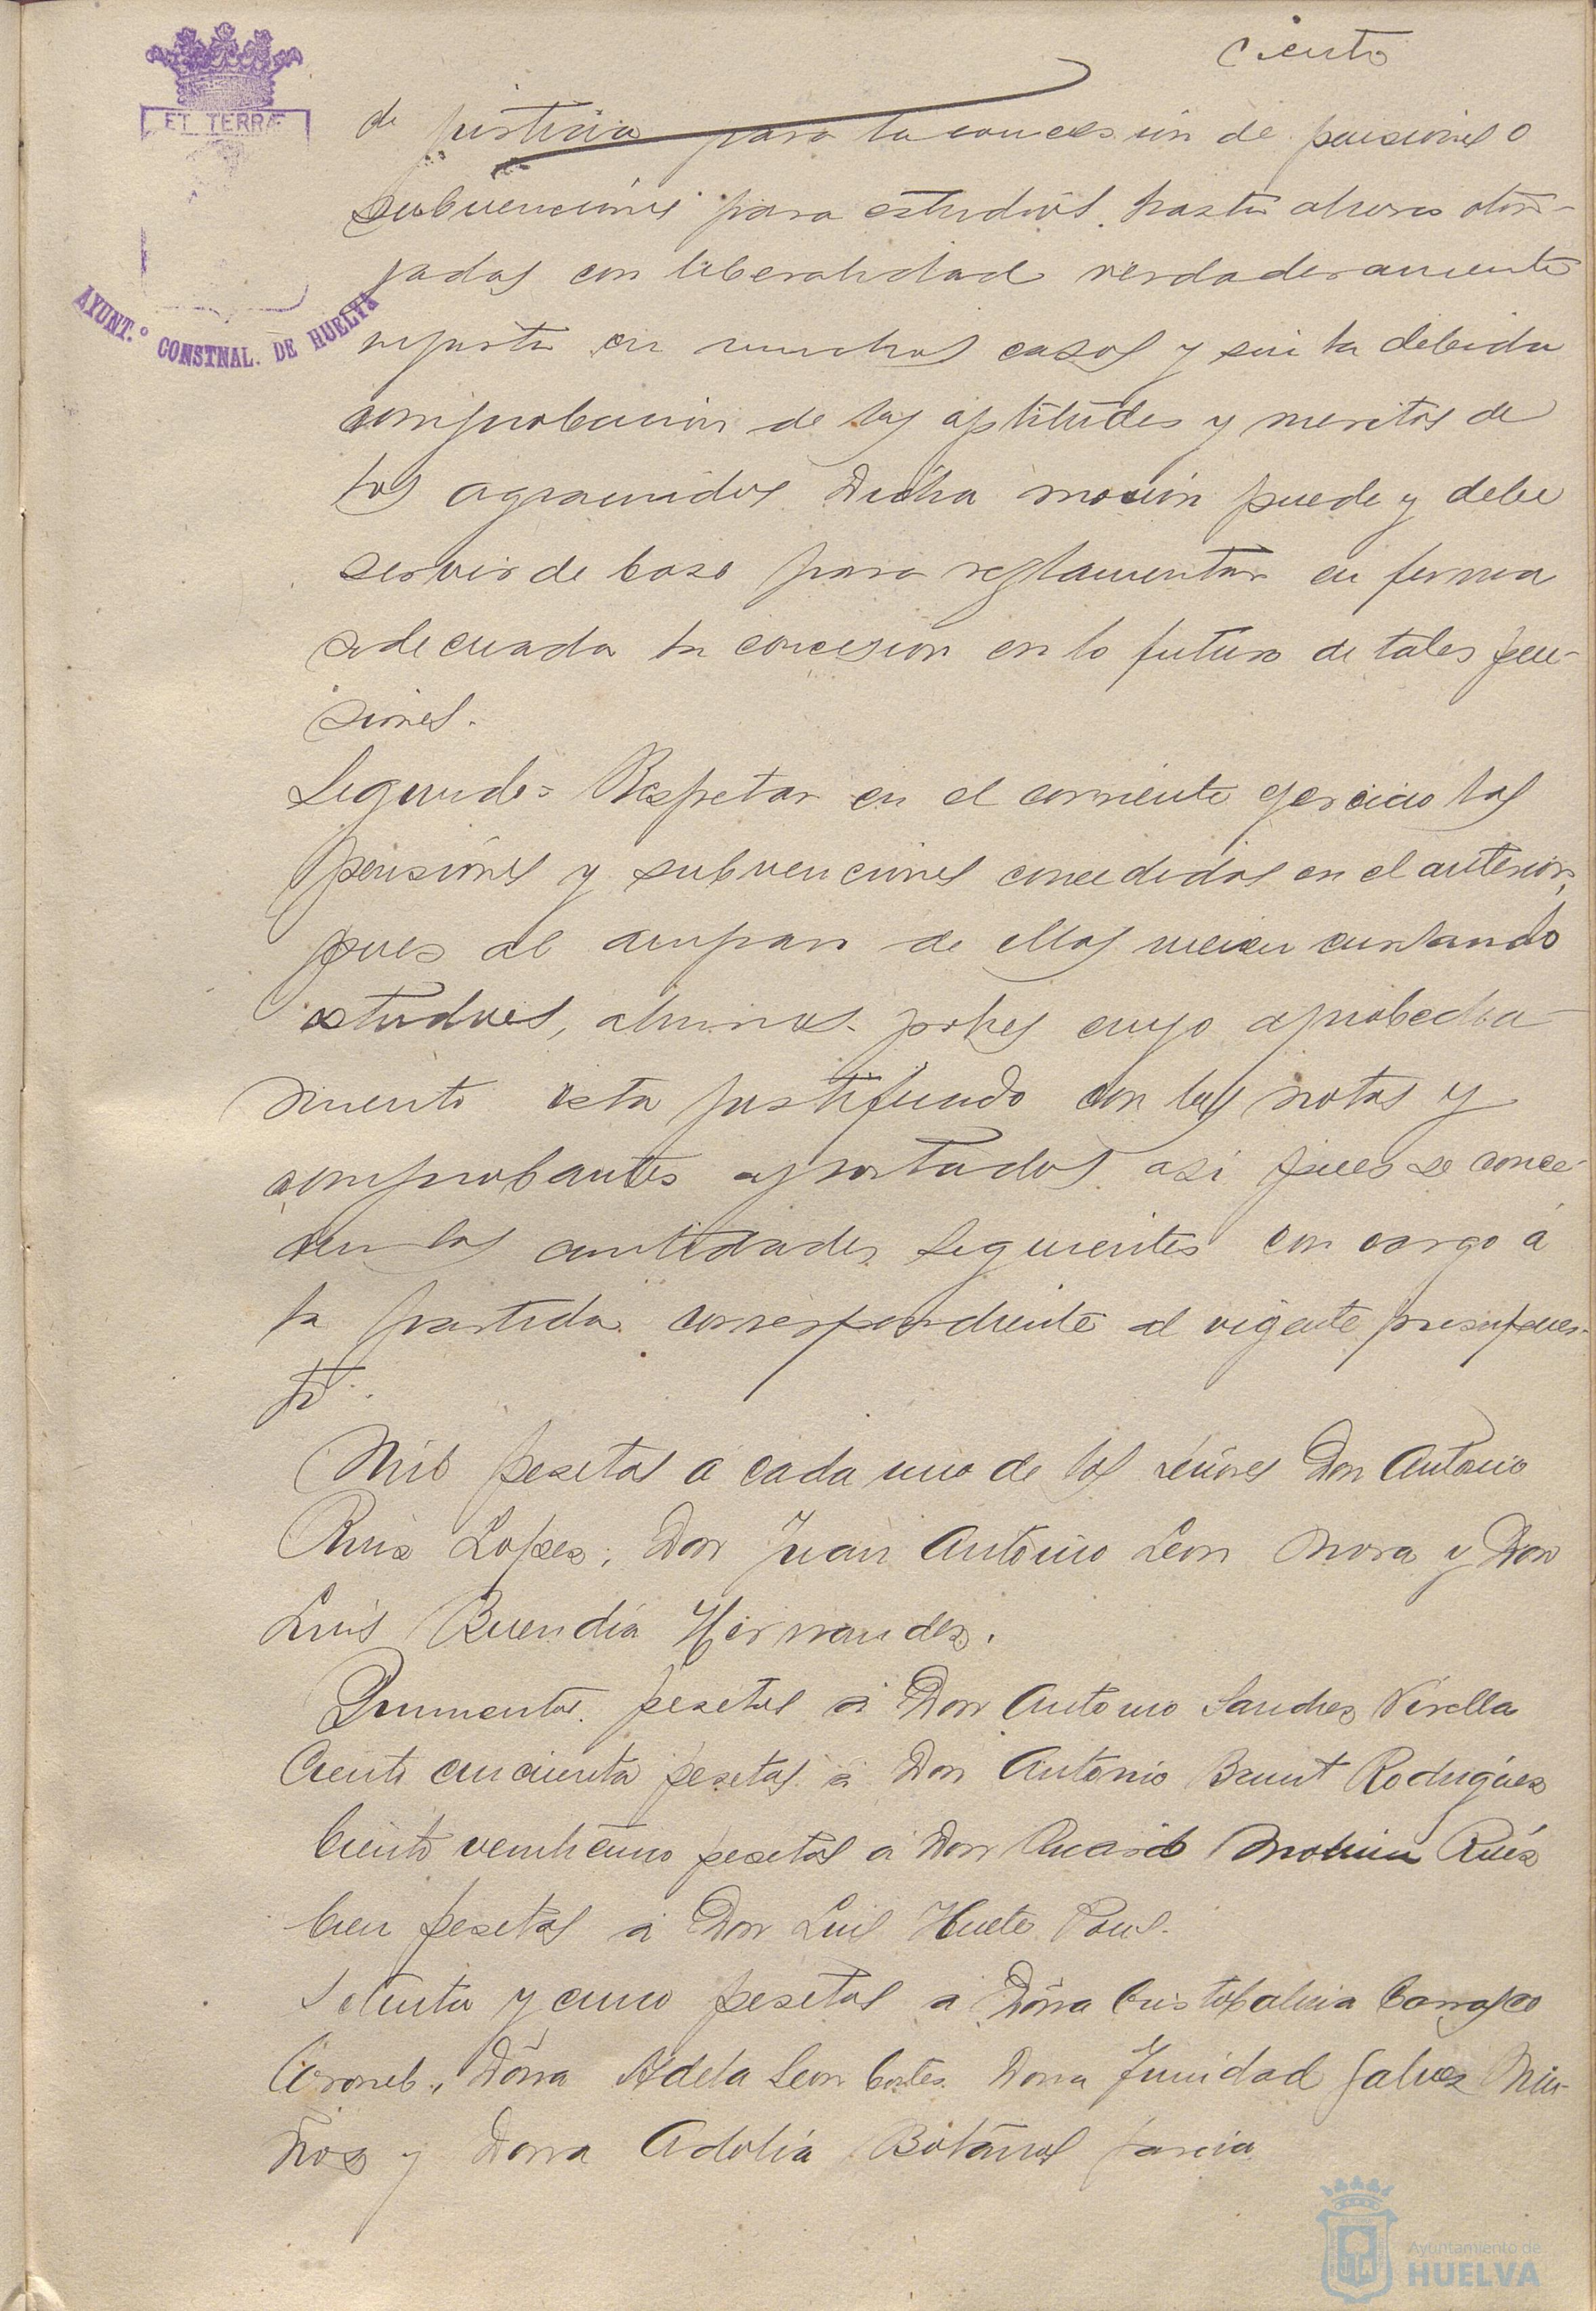 ciento
ET TERRÆ
de justicia para la concesion de pensiones o
subvenciones para estudios, hasta ahora otor-
gadas con liberalidad verdaderamente
injusta en muchos casos y sin la debida
AYUNT.º CONSTNAL. DE HUELVA
comprobacion de las aptitudes y meritos de
los agraciados Dicha mocion puede y debe
servir de base para reglamentar en forma
adecuada la concesion en lo futuro de tales pen-
siones.
Segundo= Respetar en el corriente ejercicio las
pensiones y subvenciones concedidas en el anterior,
pues al amparo de ellas vienen cursando
estudios, alumnos pobres cuyo aprobecha-
miento esta justificado con las notas y
comprobantes aportados asi pues se conce-
den las cantidades siguientes con cargo á
la partida correspondiente al vigente presupues-
to.
Mil pesetas a cada uno de los señores Don Antonio
Ruis Lopez, Don Juan Antonio Leon Mora y Don
Luis Buendia Hernandez.
Quinientas pesetas a Don Antonio Sanchez
Ciento cincuenta pesetas a Don Antonio Brunt Rodriguez
Ciento veinticinco pesetas a Don Ricardo Molina Ruiz
Cien pesetas a Don Luis Huete Pous.
Setenta y cinco pesetas a Doña Cristobalina Carrasco
Coronel, Doña Adela Leon Cortes Doña Trinidad Galvez Mu-
ñoz y Doña Adolia Garcia
Ayuntamiento de
HUELVA